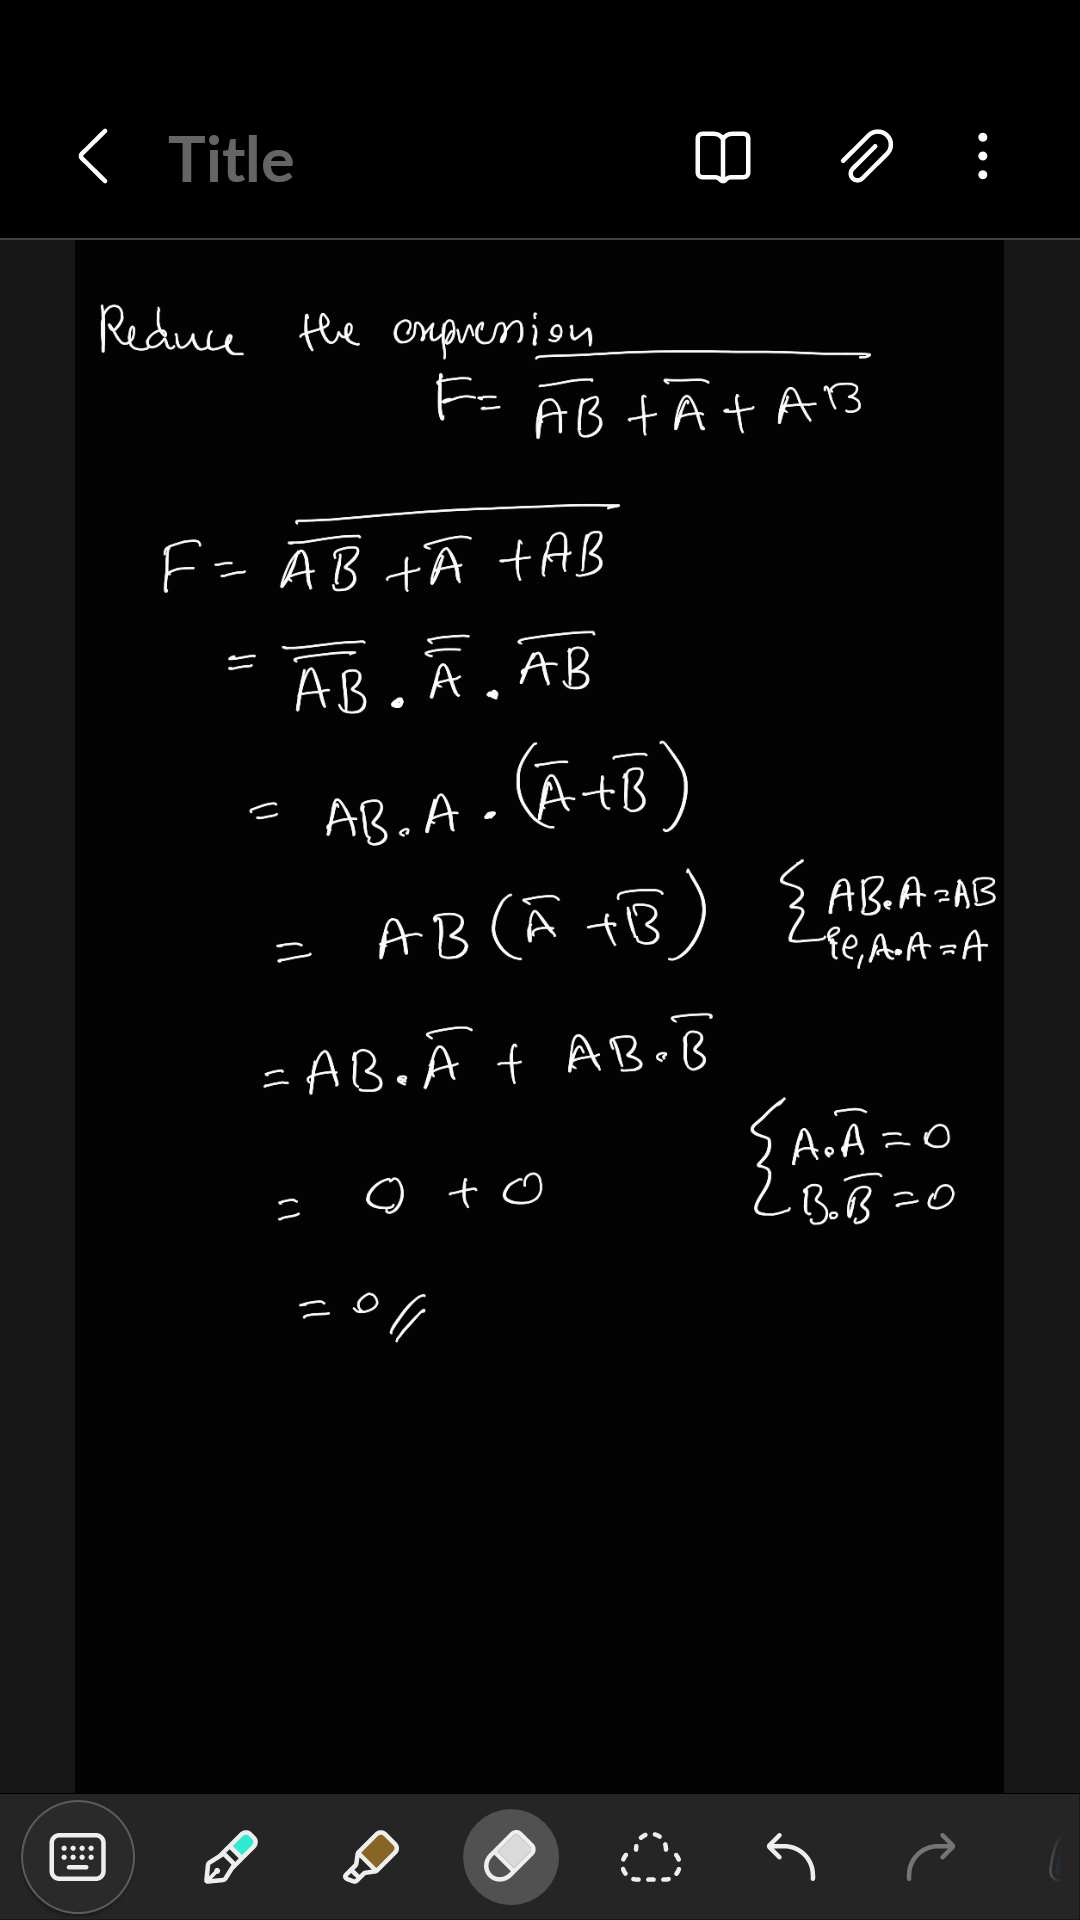 Title
Reduce the expression
F = \overline{\overline{AB} + \overline{A} + AB}
F = \overline{\overline{AB} + \overline{A} + AB}
= \overline{\overline{AB}} . \overline{\overline{A}} . \overline{AB}
= AB . A . (\overline{A} + \overline{B})
= AB (\overline{A} + \overline{B}) { AB.A = AB
ie, A.A = A
= AB . \overline{A} + AB . \overline{B}
= 0 + 0 { A.\overline{A} = 0
B.\overline{B} = 0
= 0 //